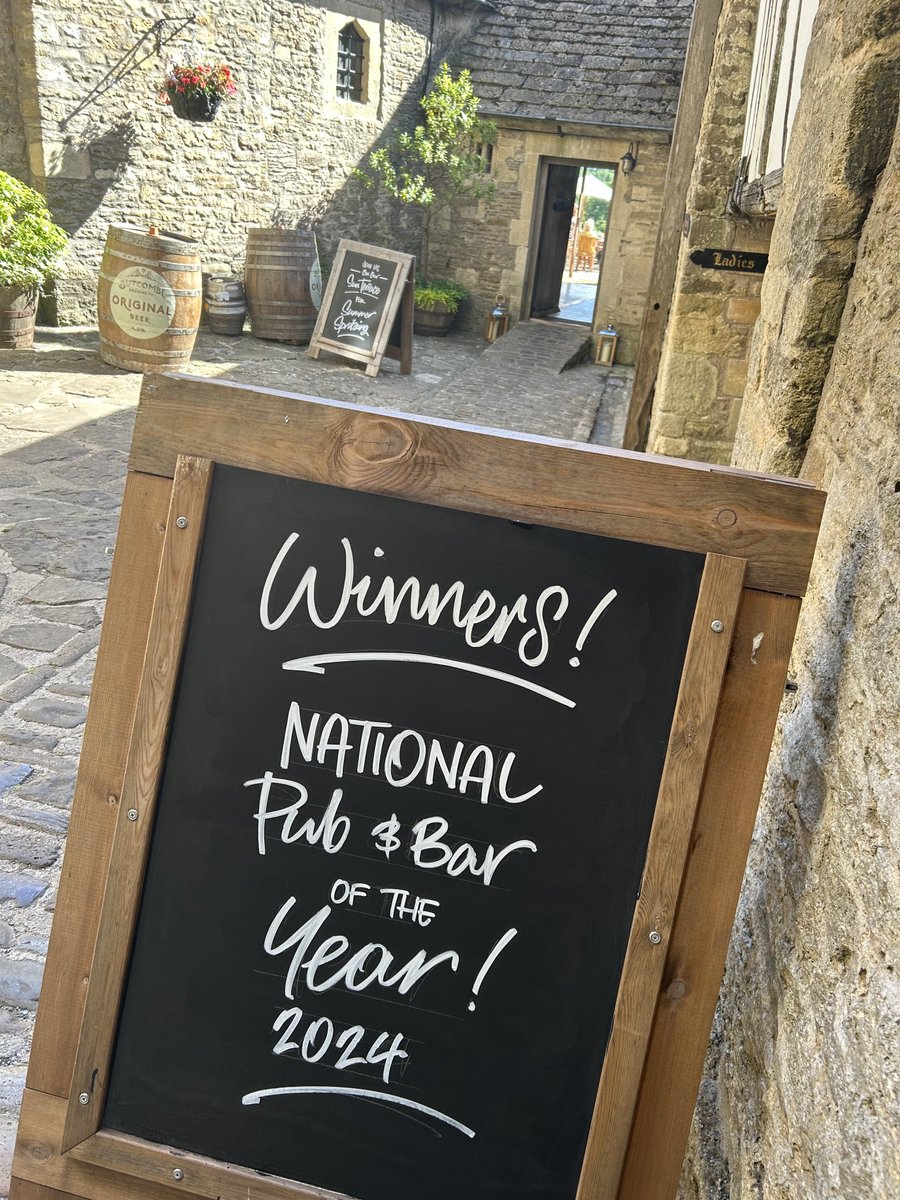 BUTCOMBE
ORIGINAL
BEER
Join us
On Our
Sun Terrace
FOR
Summer
Spritzing
Ladies
Winners!
NATIONAL
Pub & Bar
OF THE
Year!
2024